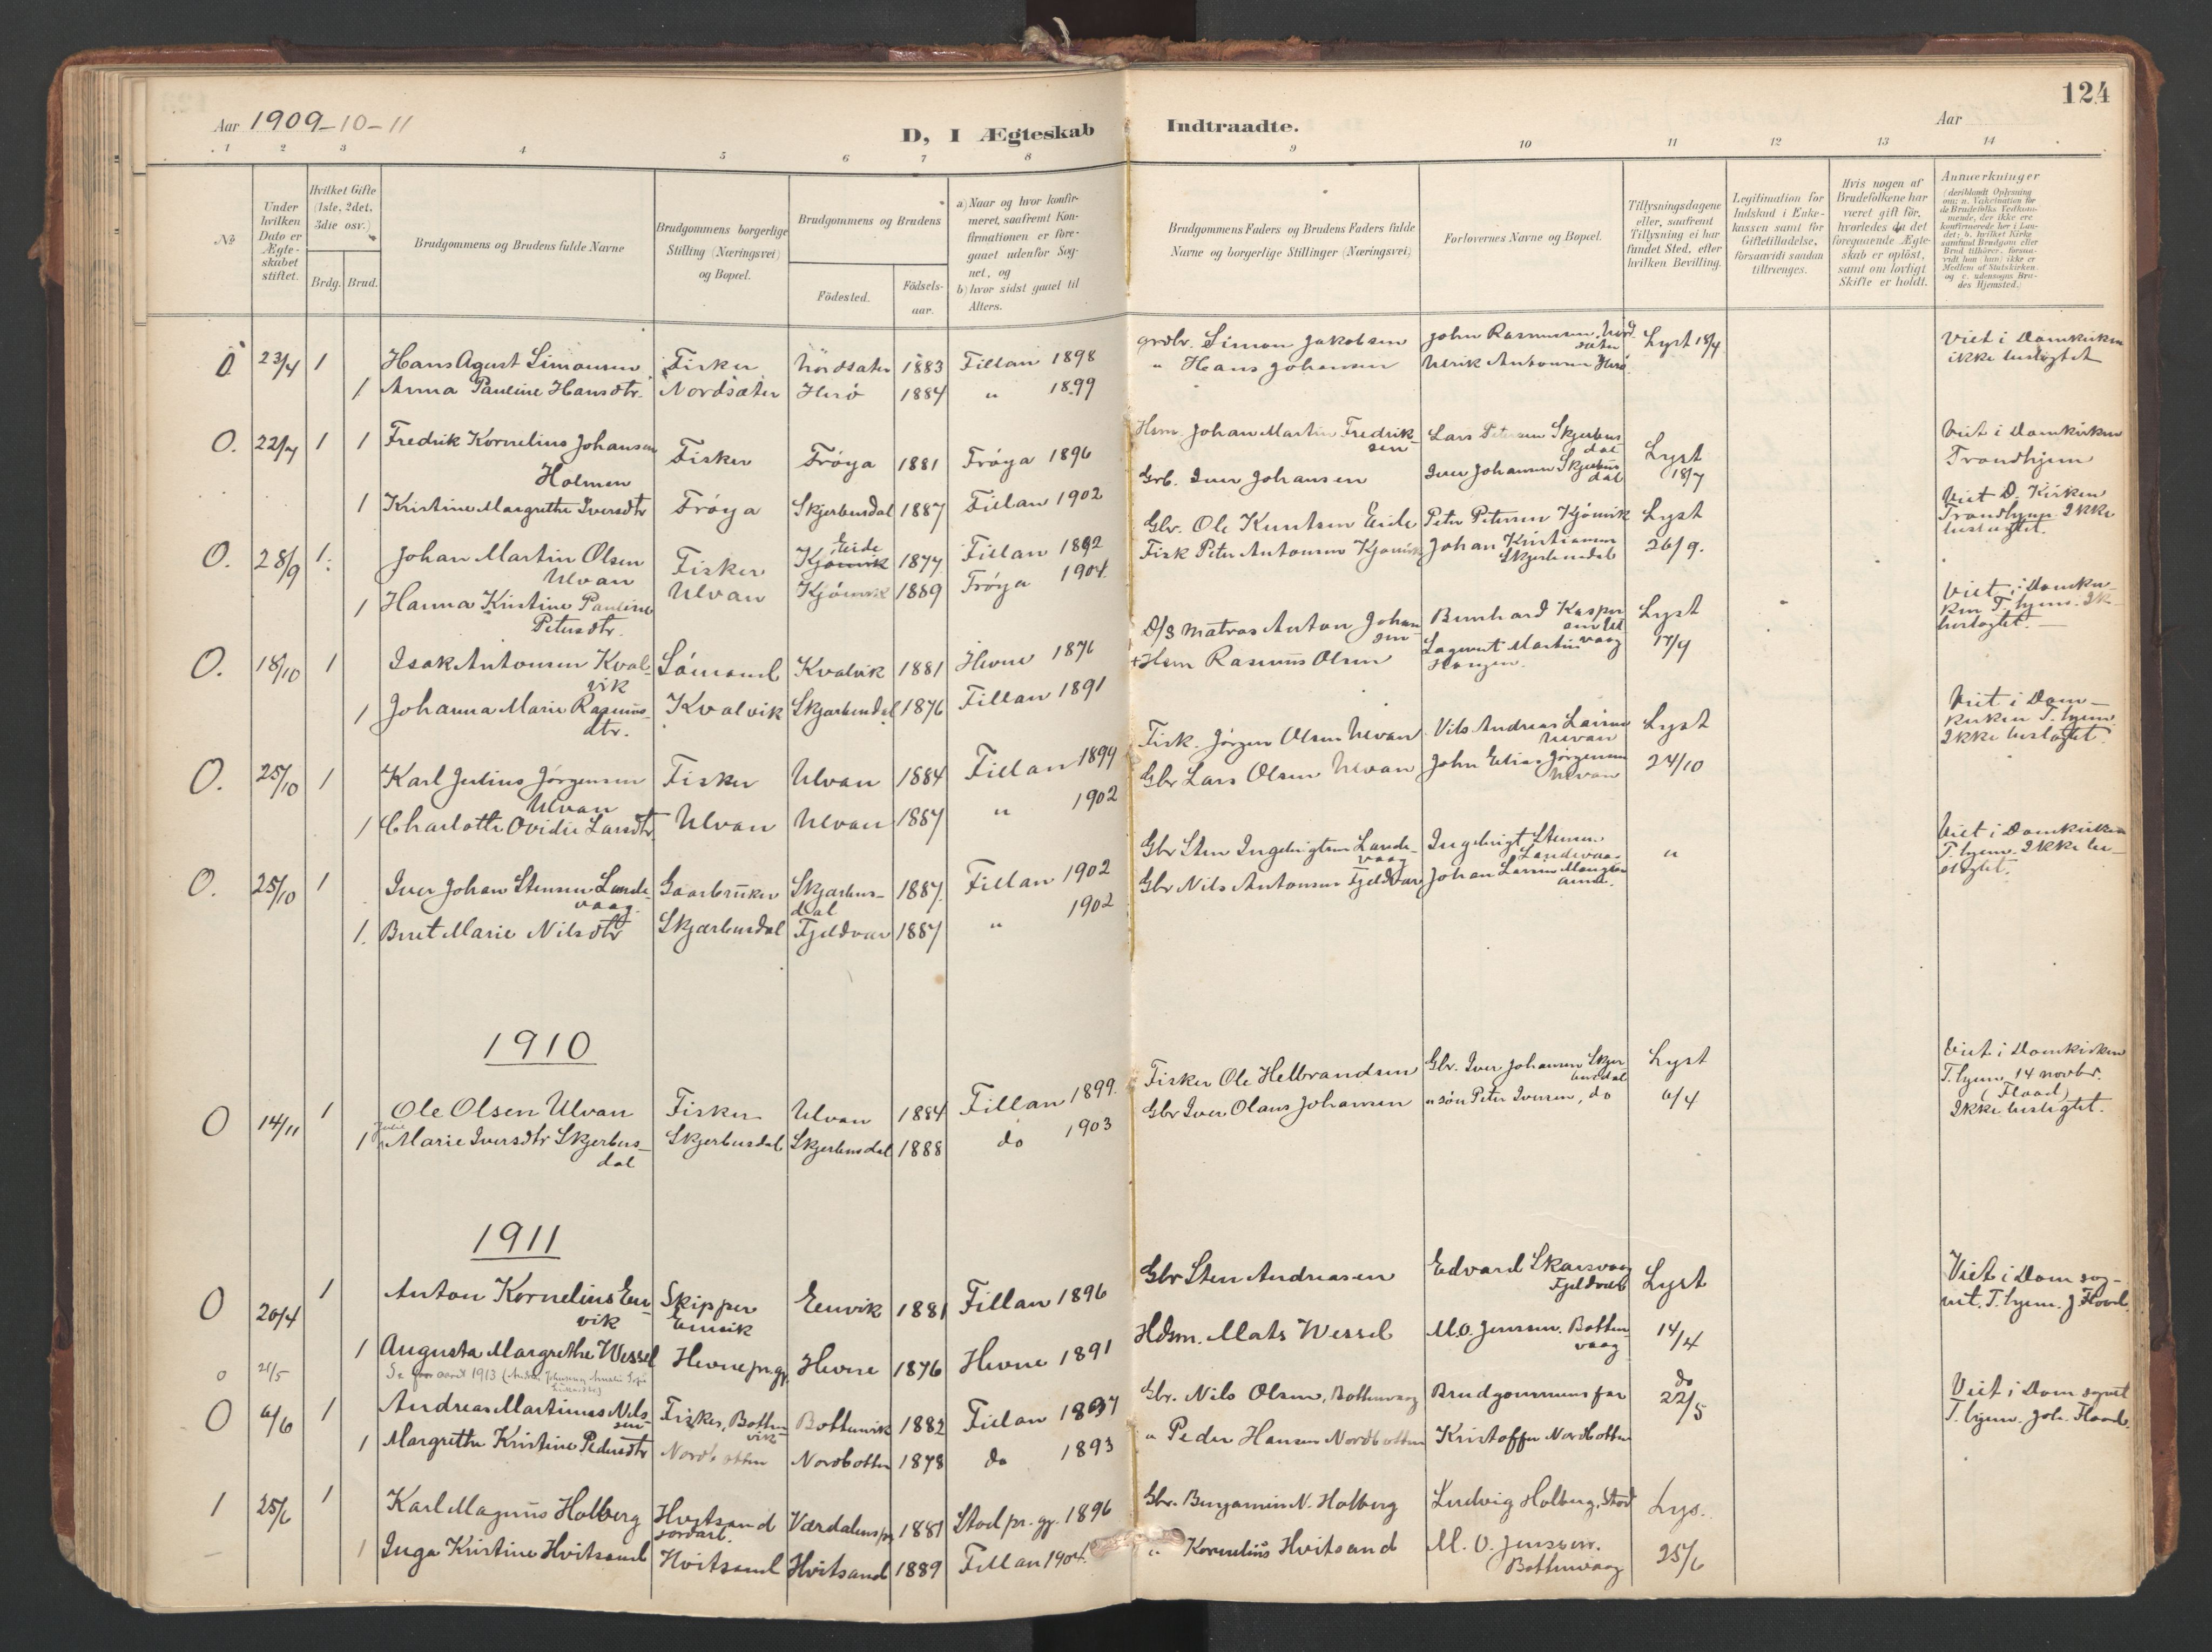 124
Aar 1909-10-11
D, I Ægteskab Indtraadte.
Aar
1 2 3 4 5 6 7 8 9 10 11 12 13 14
No
Under hvilken Dato er Ægteskabet stiftet.
Hvilket Gifte (1ste, 2det, 3die osv.)
Brdg. Brud.
Brudgommens og Brudens fulde Navne
Brudgommens borgerlige Stilling (Næringsvei) og Bopæl.
Brudgommens og Brudens
Födested.
Födselsaar.
a) Naar og hvor konfirmeret, saafremt Konfirmationen er foregaaet udenfor Sognet, og
b) hvor sidst gaaet til Alters.
Brudgommens Faders og Brudens Faders fulde Navne og borgerlige Stillinger (Næringsvei)
Forlovernes Navne og Bopæl.
Tillysningsdagene eller, saafremt Tillysning ei har fundet Sted, efter hvilken Bevilling.
Legitimation for Indskud i Enkekassen samt for Giftetilladelse, forsaavidt saadan tiltrænges.
Hvis nogen af Brudefolkene har været gift för, hvorledes da det foregaaende Ægteskab er oplöst, samt om lovligt Skifte er holdt.
Anmerkninger
O 23/4 1 Hans Agust Simonsen Fisker Nordsæter 1883 Fillan 1898 Simon Jakobsen John Rasmussen Nordsæter Lyst 18/4 Viet i Domkirken
1 Anna Pauline Hansdtr. Nordsæter Herö 1884 " 1899 " Hans Johansen Ulrik Antonsen Herö ikke beslægtet
O. 22/7 1 1 Fredrik Kornelius Johansen Fisker Fröya 1881 Fröya 1896 Hsm. Johan Martin Fredriksen Lars Petersen Skjerbusdal Lyst Viet i Domkirken
Holmen 18/7 Trondhjem
1 Kristine Margrethe Iversdtr Fröya Skjerbusdal 1887 Fillan 1902 Grb. Iver Johansen Iver Johansen Skjerbusdal
O. 28/9 1. Johan Martin Olsen Fisker Eide Kjönsvik 1877 Fillan 1892 Gbr. Ole Knutsen Eide Peter Petersen Kjönvik Lyst Viet D. Kirken
Ulvan Trondhjem. Ikke
1 Hanna Kristine Pauline Ulvan Kjönvik 1889 Fröya 1904. Fisk Peter Antonsen Kjönvik Johan Kristiansen 26/9. beslægtet.
Petersdtr. Skjerbusdal
O. 18/10 1 Isak Antonsen Kvalvik Sömand Kvalvik 1881 Hevne 1876 D/S Matros Anton Johansen Lyst Viet i Domkirken T.hjem. Ik
1 Johanna Marie Rasmusdtr. Kvalvik Skjærbusdal 1876 Fillan 1891 + Hsm Rasmus Olsen 17/9 beslægtet.
O. 25/10 1 Karl Julius Jörgensen Fisker Ulvan 1884 Fillan 1899 Fisk. Jörgen Olsen Ulvan Nils Andreas Larsen Ulvan Lyst Viet i Domkirken T.hjem
Ulvan Ikke beslægtet.
1 Charlotte Ovidie Larsdtr. Ulvan Ulvan 1887 " 1902 Gbr Lars Olsen Ulvan John Elias Jörgensen Ulvan 24/10
O. 25/10 1 Iver Johan Stensen Lundevaag Gaarbruker Skjærbusdal 1887. Fillan 1902 Gbr Sten Ingebrigtsen Lundevaag Ingebrigt Stensen " Viet i Domkirken
Landevaag T.hjem. Ikke beslægtet.
1. Beret Marie Nilsdtr Skjærbusdal Fjeldvær 1887 " 1902 Gbr Nils Antonsen Fjeldvær Johan Larsen
1910
O 14/11 1 Ole Olsen Ulvan Fisker Ulvan 1884 Fillan 1899. Fisker Ole Helbrandsen Gbr. Iver Johansen Skjerbusdal Lyst Viet i Domkirken
T.hjem 14 novbr. (Flood)
1 Marie Iversdtr Skjerbusdal Skjerbusdal Skjerbusdal 1888 do 1903 Gbr Iver Olaus Johansen " sön Peter Iversen, do 6/4 Ikke beslegtet.
1911
O 20/4 1 Anton Kornelius Eenvik Skipper Eenvik Eenvik 1881 Fillan 1896 Gbr Sten Andreasen Edvard Skarsvaag Fjeldvær Lyst Viet i Dom sognet. T.hjem. J Flood.
1 Augusta Margrethe Wessel Hevne pr.gj. Hevne 1876 Hevne 1891 Hdsm. Mats Wessel M.O. Jenssen. Bottenvaag 14/4
o 21/5 1913
O 6/6 1 Andreas Martinus Nilssen Fisker, Bottenvik Bottenvik 1882 Fillan 1897 Gbr. Nils Olsen, Bottenvaag Brudgommens far do 22/5 Viet i Dom sognet
T.hjem. Joh. Flood.
1 Margrethe Kristine Pedersdtr Nordbotten Nordbotten 1878 do 1893 " Peder Hansen Nordbotten Kristoffer Nordbotten
1 25/6 1 Karl Magnus Holberg Hvitsand jordarb. Værdalens pr 1881 Stod pr. gj. 1896 Gbr. Benjamin N. Holberg Ludvig Holberg, Stod Lys.
1 Inga Kristine Hvitsand Hvitsand Hvitsand 1889 Fillan 1904. " Kornelius Hvitsand M. O. Jenssen. Bottenvaag 25/6